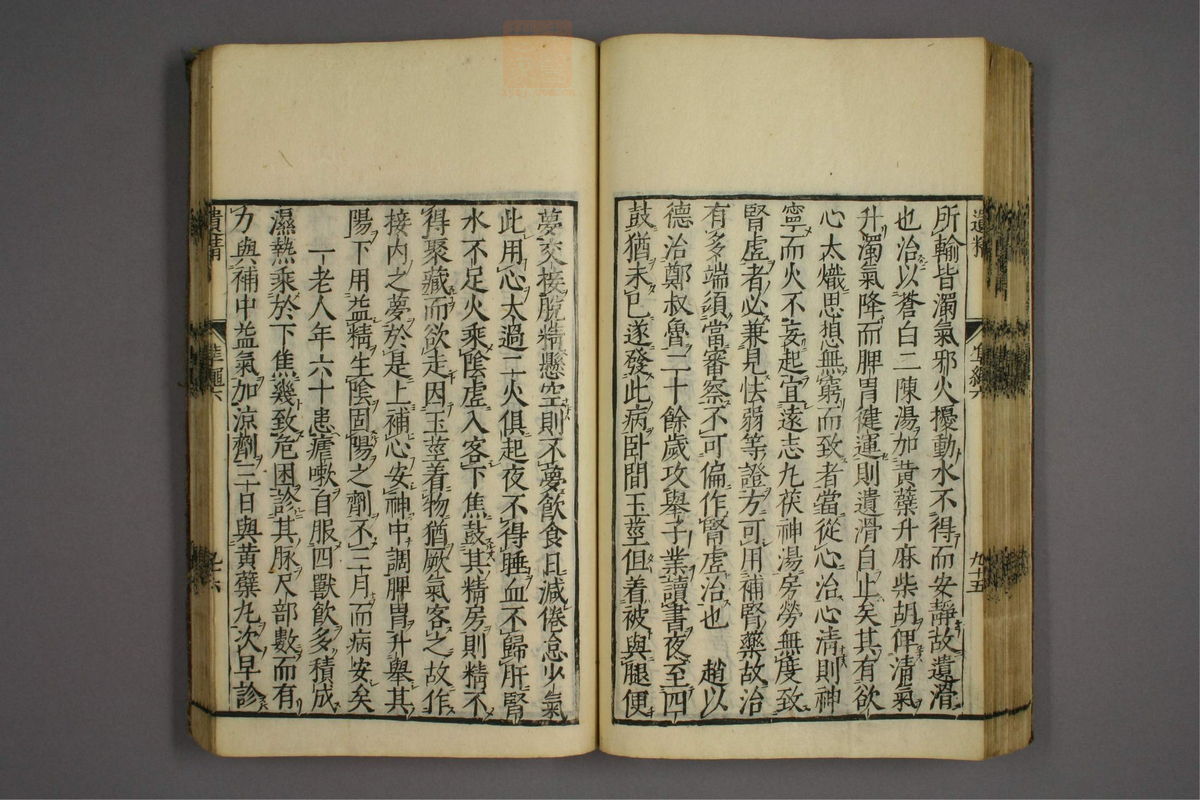 遺精
九十五
所輸皆濁氣邪火擾動水不得而安靜故遺滑
也治以蒼白二陳湯加黃蘗升麻柴胡俾清氣
升濁氣降而脾胃健運則遺滑自止矣其有欲
心太熾思想無窮而致者當從心治心清則神
寧而火不妄起宜遠志丸茯神湯房勞無度致
腎虛者必兼見怯弱等證方可用補腎藥故治
有多端須當審察不可偏作腎虛治也　趙以
德治鄭叔魯二十餘歲攻舉子業讀書夜至四
鼓猶未已遂發此病卧間玉莖但着被與腿便
夢交接脫精懸空則不夢飲食日減倦怠少氣
此用心太過二火俱起夜不得睡血不歸肝腎
水不足火乘陰虛入客下焦鼓其精房則精不
得聚藏而欲走因玉莖着物猶厥氣客之故作
接內之夢於是上補心安神中調脾胃升舉其
陽下用益精生陰固陽之劑不三月而病安矣
一老人年六十患瘧嗽自服四獸飲多積成
濕熱乘於下焦幾致危困診其脉尺部數而有
力與補中益氣加涼劑三日與黃蘗丸次早診
遺精
九十六